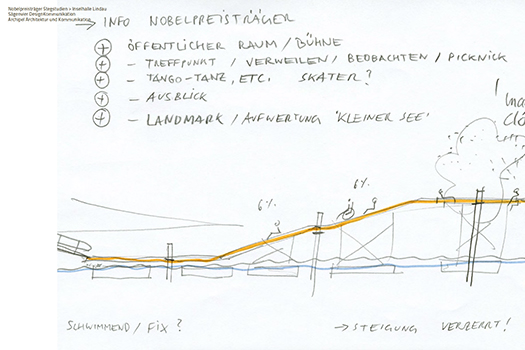 Nobelpreisträger Stegstudien > Inselhalle Lindau
Sägenvier DesignKommunikation
Archipel Architektur und Kommunikation
→ INFO NOBELPREISTRÄGER
+ ÖFFENTLICHER RAUM / BÜHNE
+ – TREFFPUNKT / VERWEILEN / BEOBACHTEN / PICKNICK
+ – TANGO-TANZ, ETC. SKATER?
+ – AUSBLICK
+ – LANDMARK / AUFWERTUNG 'KLEINER SEE'
6%
6%
SCHWIMMEND / FIX ?
→ STEIGUNG VERZERRT!